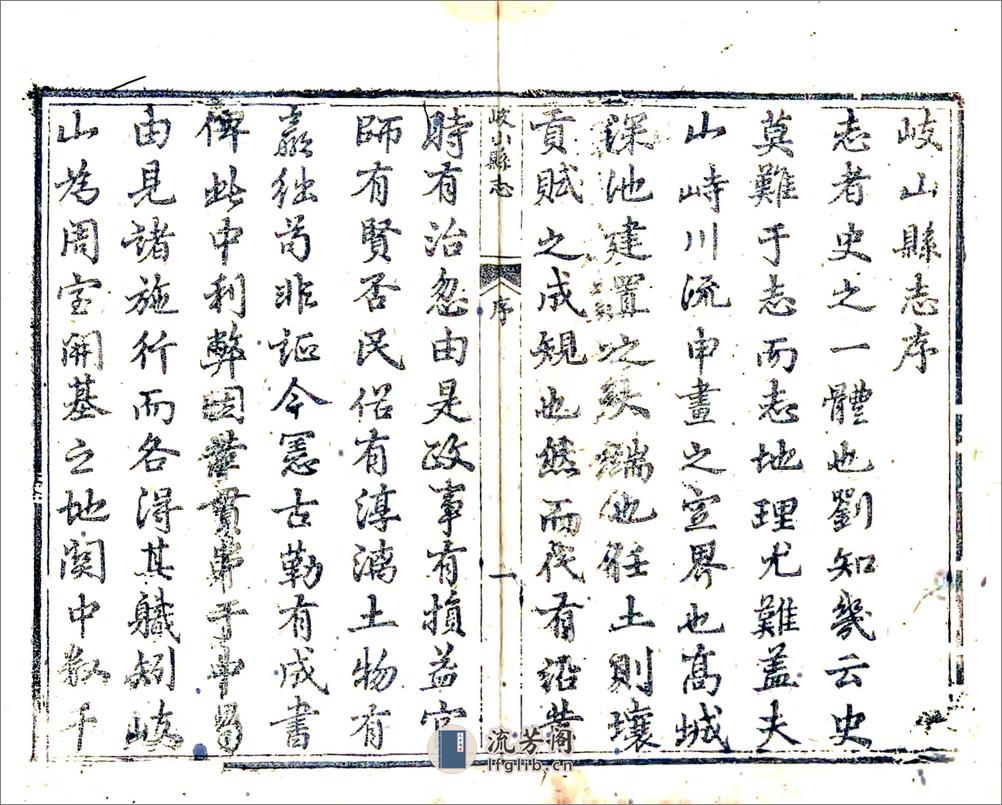 岐山縣志序
志者史之一體也劉知幾云史
莫難于志而志地理尤難蓋夫
山峙川流申畫之定界也高城
深池建置之殊端也任土則壤
貢賦之成規也然而代有沿革
岐山縣志
序
一
時有治忽由是政事有損益官
師有賢否民俗有淳漓土物有
嬴絀苟非証今憲古勒有成書
俾此中利弊因革貫串于中曷
由見諸施行而各得其職矧岐
山為周室開基之地関中數千
流芳阁
lfglib.cn